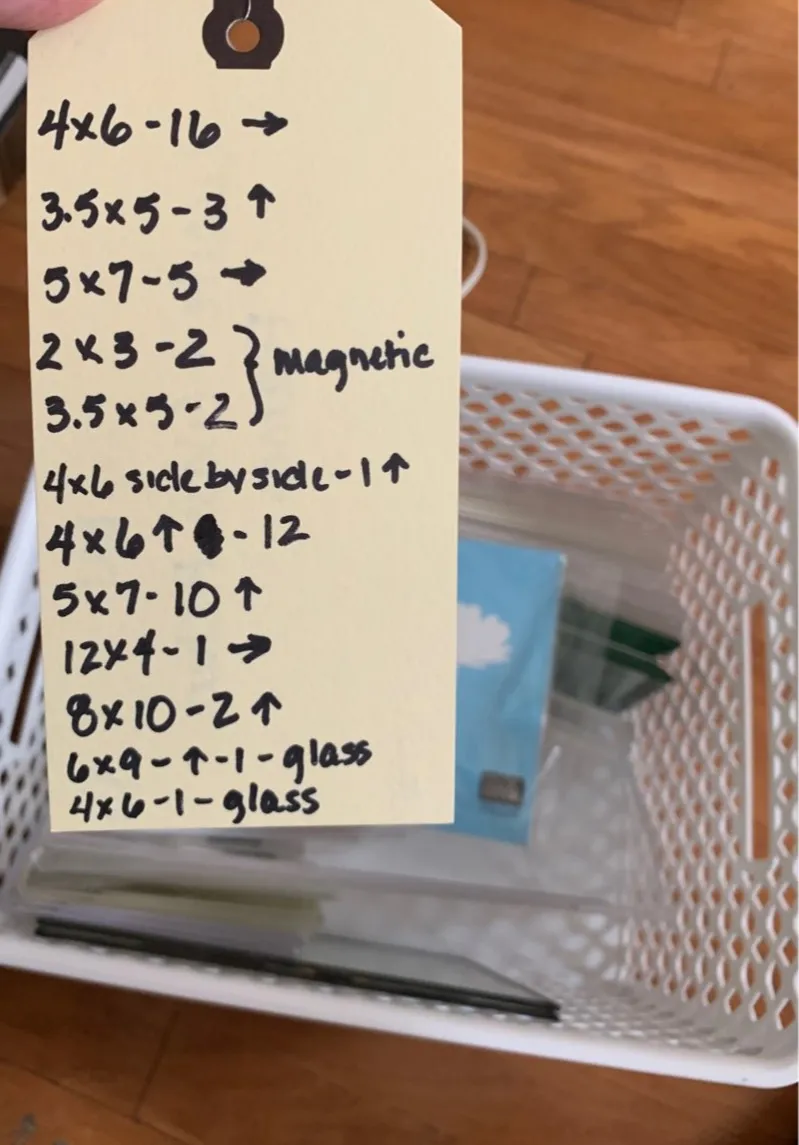 4x6-16 →
3.5x5-3 ↑
5x7-5 →
2x3-2 } magnetic
3.5x5-2
4x6 side by side-1↑
4x6↑ -12
5x7-10↑
12x4-1 →
8x10-2↑
6x9-↑-1-glass
4x6-1-glass